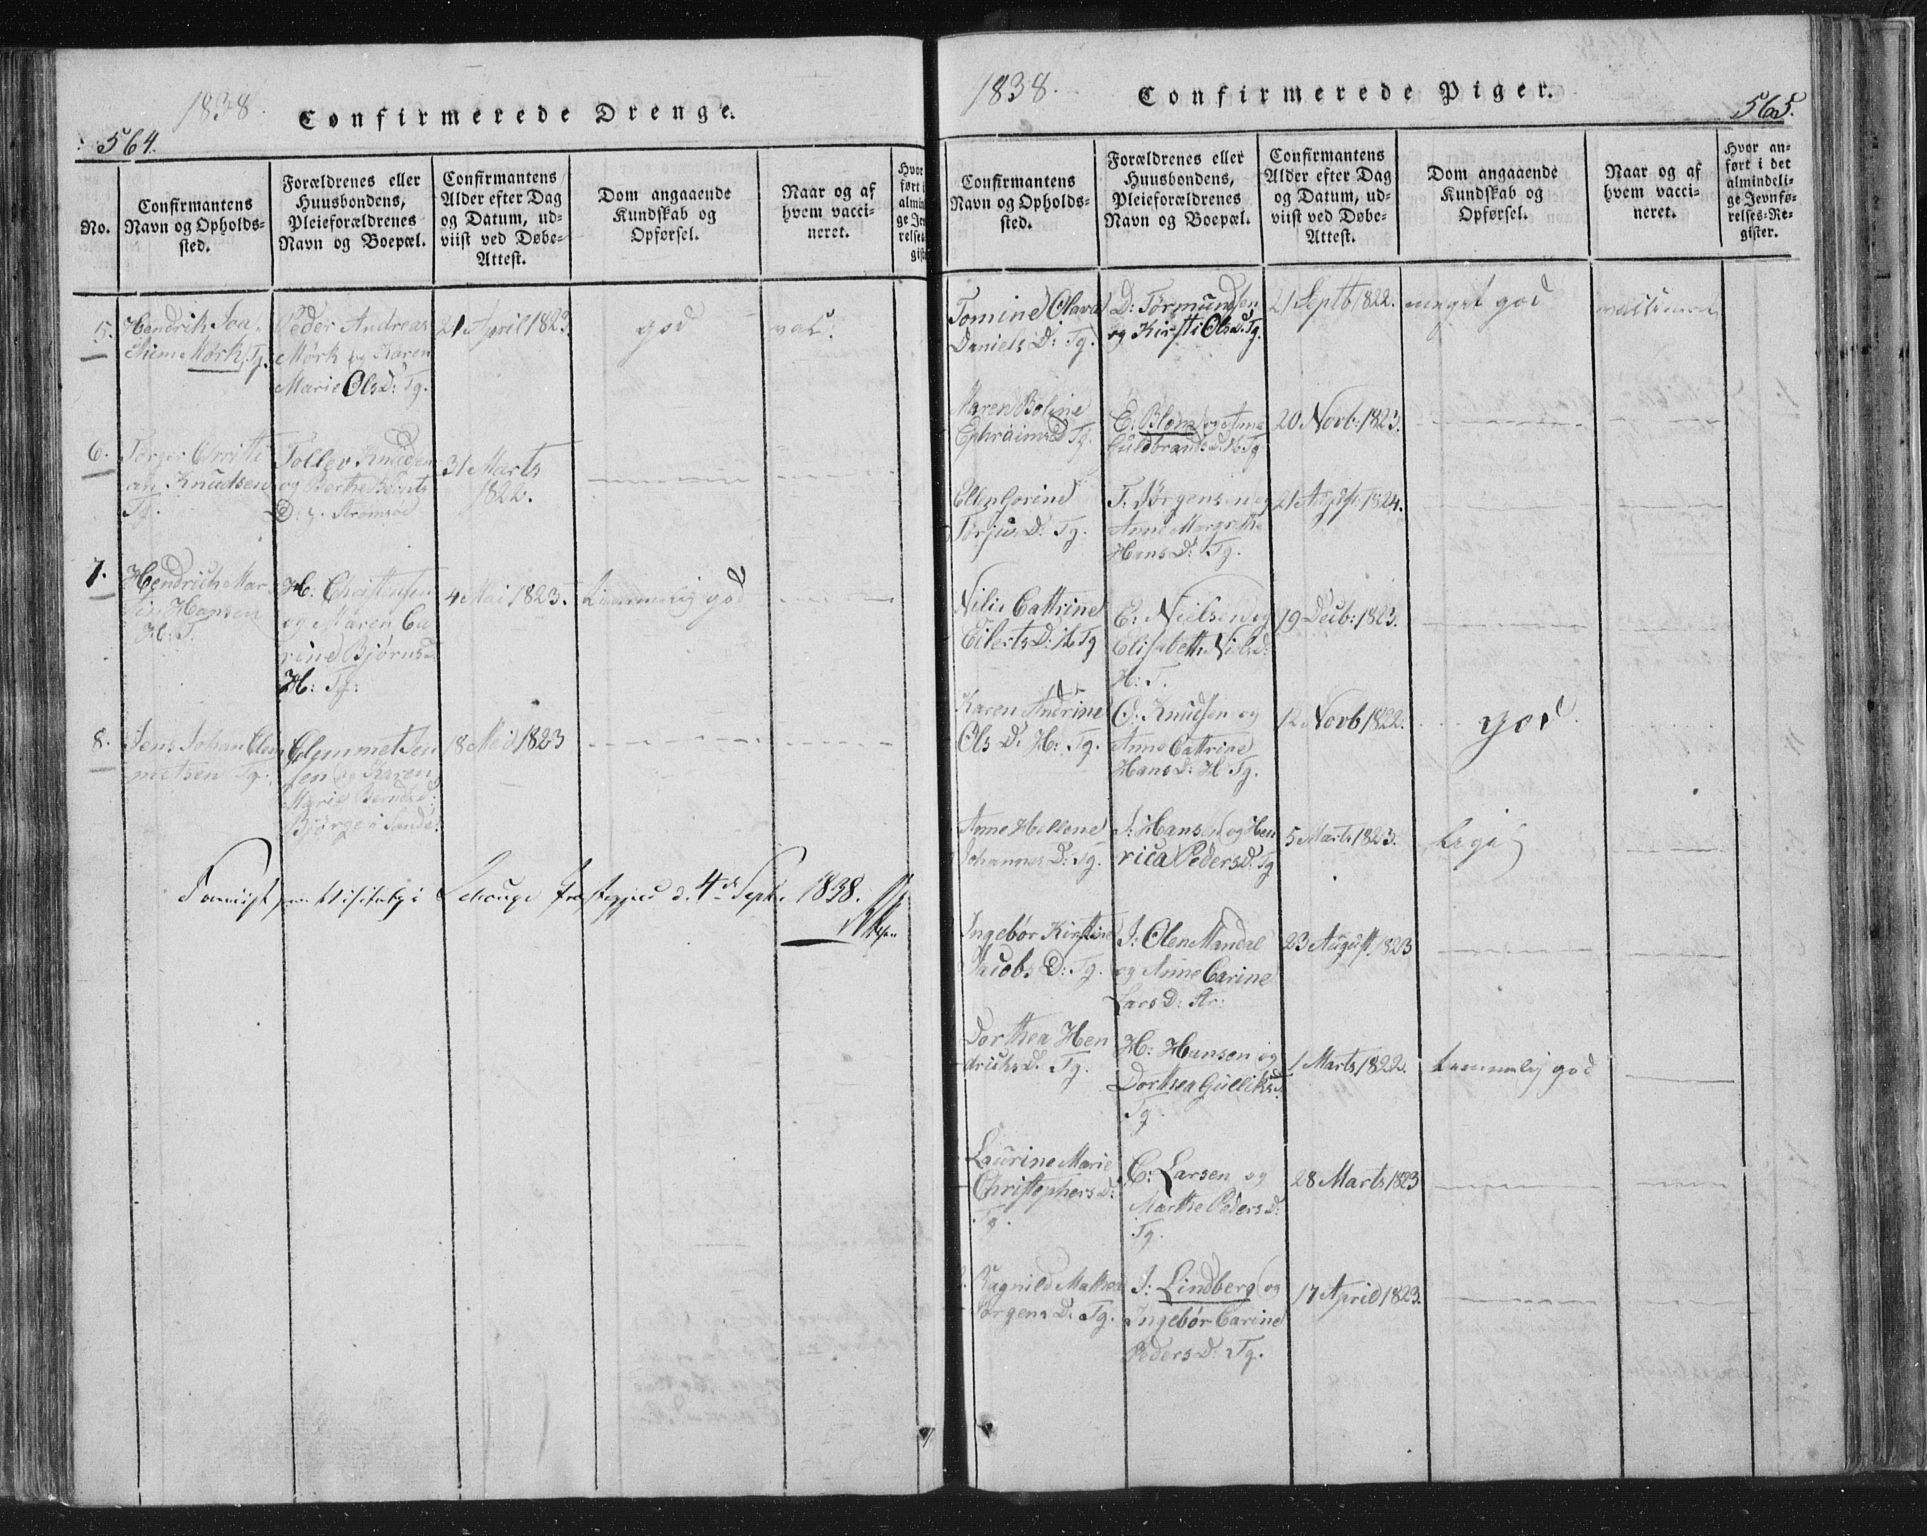 1838.
Confirmerede Drenge.
564.
No.
Confirmantens
Navn og Opholds-
sted.
Forældrenes eller
Huusbondens,
Pleieforældrenes
Navn og Boepæl.
Confirmantens
Alder efter Dag
og Datum, ud-
viist ved Døbe-
Attest.
Dom angaaende
Kundskab og
Opførsel.
Naar og af
hvem vacci-
neret.
5.
Hendrik Joa-
Mørk, Tg.
Peder Andreas
Mørk og Karen
Marie OlsD: Tg.
21 April 1823
god
vac:
6.
Knudsen
Tg.
Toller Knudsen
og Berthe
D:
31 Marts
1822.
7.
Hendrich Mar-
tin Hansen
H: T.
H: Christensen
og Maren Ca
rine BjørnsD
H: Tg:
4 Mai 1823.
temmelig god
8.
Jens Johan Clem
metsen Tg.
Clemmet Jen
sen og Karen
Marie
18 Mai 1823
Præstegjeld d. 4de Septr. 1838.
1838.
Confirmerede Piger.
565.
Confirmantens
Navn og Opholds-
sted.
Forældrenes eller
Huusbondens,
Pleieforældrenes
Navn og Boepæl.
Confirmantens
Alder efter Dag
og Datum, ud-
viist ved Døbe-
Attest.
Dom angaaende
Kundskab og
Opførsel.
Naar og af
hvem vacci-
neret.
Hvor an-
ført i det
almindeli-
ge Jevnfø-
relses-Re-
gister.
Tomine Olava
Daniels D: Tg.
D: Tørmundsen
og Kirsti OlsD. Tg.
21 Septb 1822.
meget god
vaccineret
Maren Boline
Ephraims D Tg.
E: Blom og Anne
GuldbrandsD. H. Tg
20 Novb: 1823.
Ellen Gorine
Torjus D: Tg.
T. Jørgensen og
Anne Margrethe
Hans D: Tg.
21 August 1824.
Nilia Cathrine
Eilerts D: H. Tg
E: Nielsen og
Elisabeth NielsD:
H: T.
19 Decb: 1823.
Karen Andrine
Ols D. H: Tg.
O: Knudsen og
Anne Cathrine
Hans D: H. Tg.
12 Novb 1822.
god
Anne Hellene
Johannes D: Tg.
J: Hansen og Hen
rica PedersD. Tg
5 Marts 1823.
Ingebør Kirstine
Jacobs D: Tg.
J: Olen Mandal
og Anne Carine
Lars D:
23 August 1823
Dorthea Hen
drichs D. Tg.
H: Hansen og
Dorthea GulliksD.
Tg.
1 Marts 1822.
temmelig god
Laurine Marie
ChristophersD:
Tg.
C: Larsen og
Marthe Peders D.
Tg.
28 Marts 1823
Ragnild Mathea
Jørgens D. Tg.
J: Lindberg og
Ingebør Carine
Peders D: Tg.
17 April 1823.